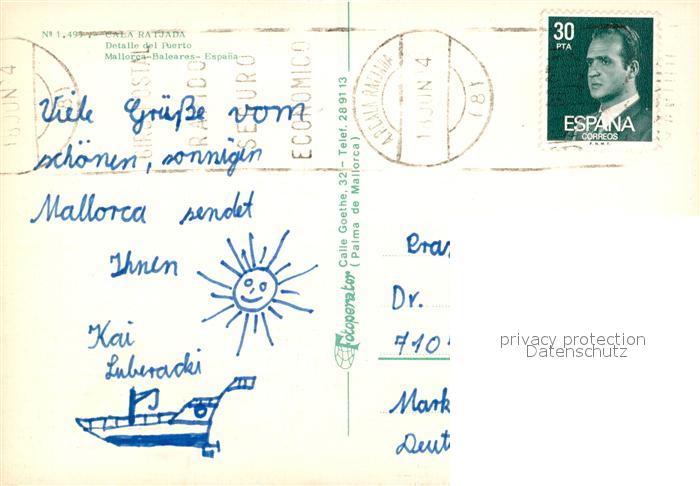 Nº 1.495 - CALA RATJADA
Detalle del Puerto
Mallorca-Baleares-España
Viele Grüße vom
schönen, sonnigen
Mallorca sendet
Ihnen
Kai
Luberadki
POSTAL
RAPIDO
SEGURO
ECONOMICO
16 JUN 4
(8)
16 JUN 4
(8)
30
PTA
ESPAÑA
CORREOS
F.N.M.T.
Fotoperator
Calle Goethe, 32 - Telef. 28 91 13
(Palma de Mallorca)
Dr.
710
Mark
Deut
privacy protection
Datenschutz